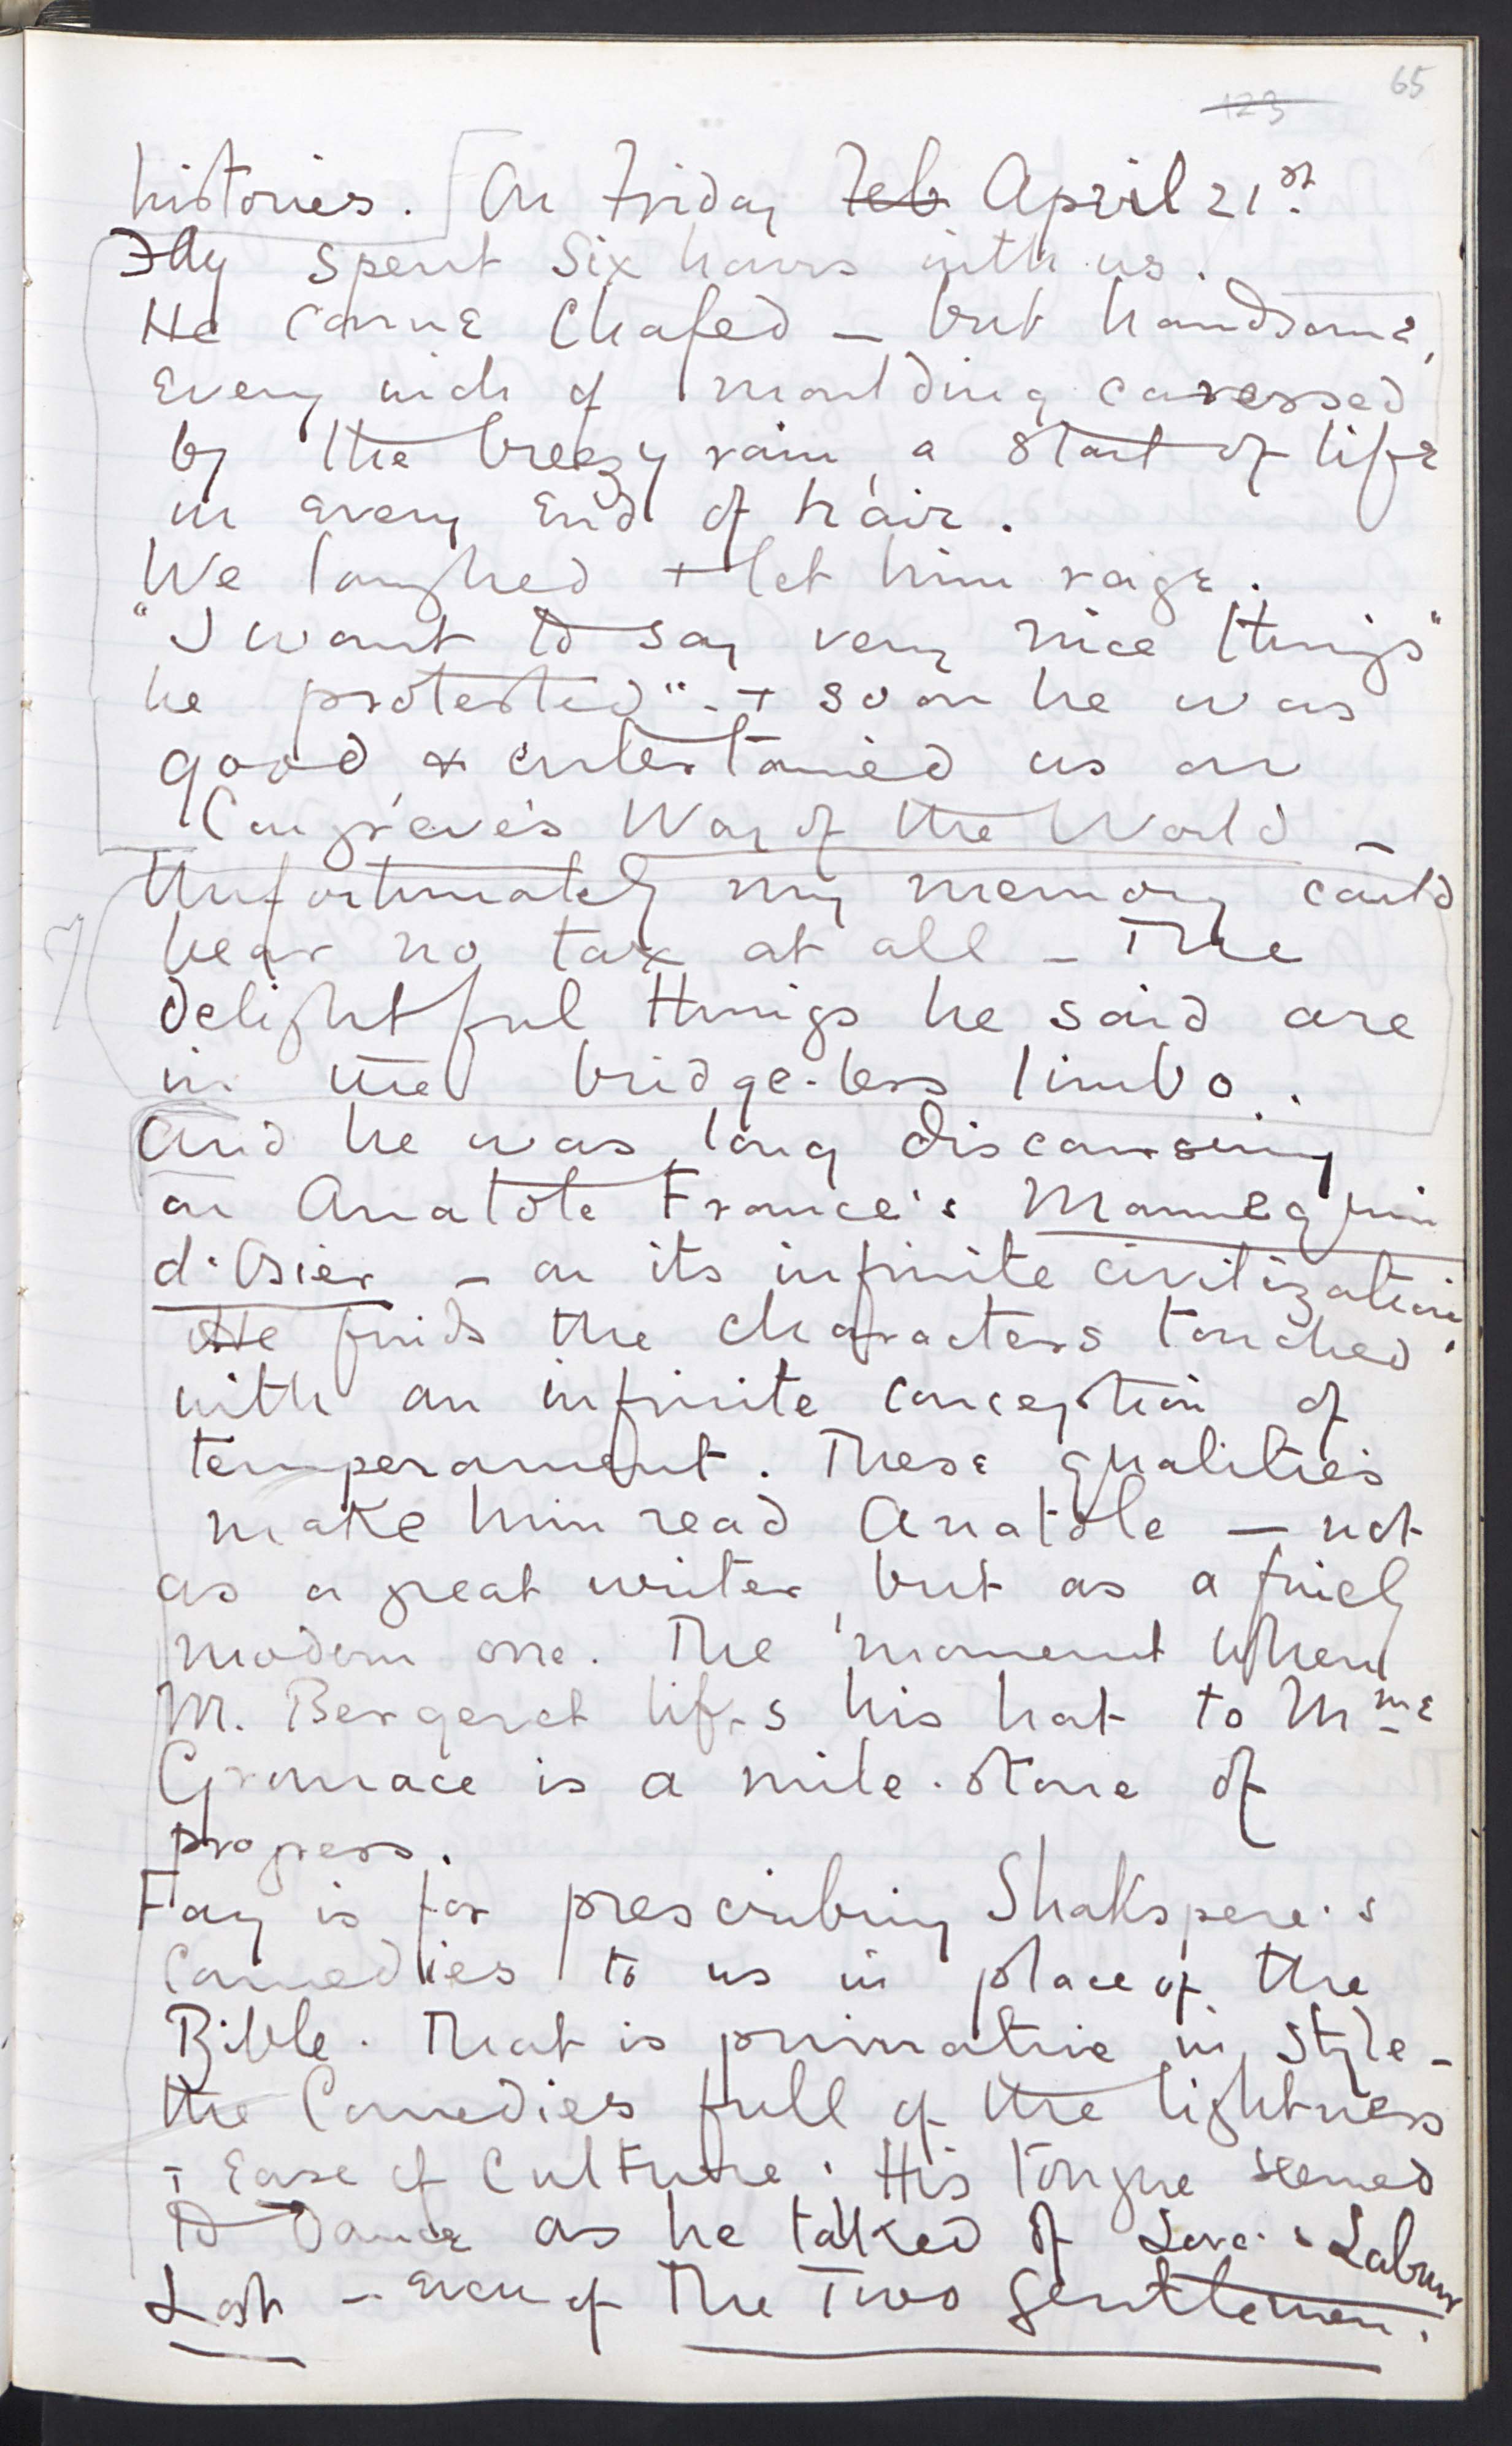 65
123
histories. On Friday Feb April 21st.
Fay spent six hours with us.
He came chafed – but handsome,
every inch of moulding caressed
by the breezy rain, a start of life
in every end of hair.
We laughed + let him rage.
"I want to say very nice things"
he protested" - + soon he was
good & entertained us on
Congreve's Way of the World –
Unfortunately my memory could
bear no tax at all – The
delightful things he said are
in the bridge-less limbo.
And he was long discoursing
on Anatole France's Mannequin
d'Osier – on its infinite civilization.
He finds the characters touched
with an infinite conception of
temperament. These qualities
make him read Anatole – not
as a great writer, but as a finely
modern one. The moment when
M. Bergeret lifts his hat to Mme
Gromace is a mile-stone of
progress.
Fay is for prescribing Shakspere's
Comedies to us in place of the
Bible. That is primative in style –
the Comedies full of the lightness
+ ease of Culture. His tongue seemed
to dance as he talked of Love's Labours
Lost – even of The Two Gentlemen.